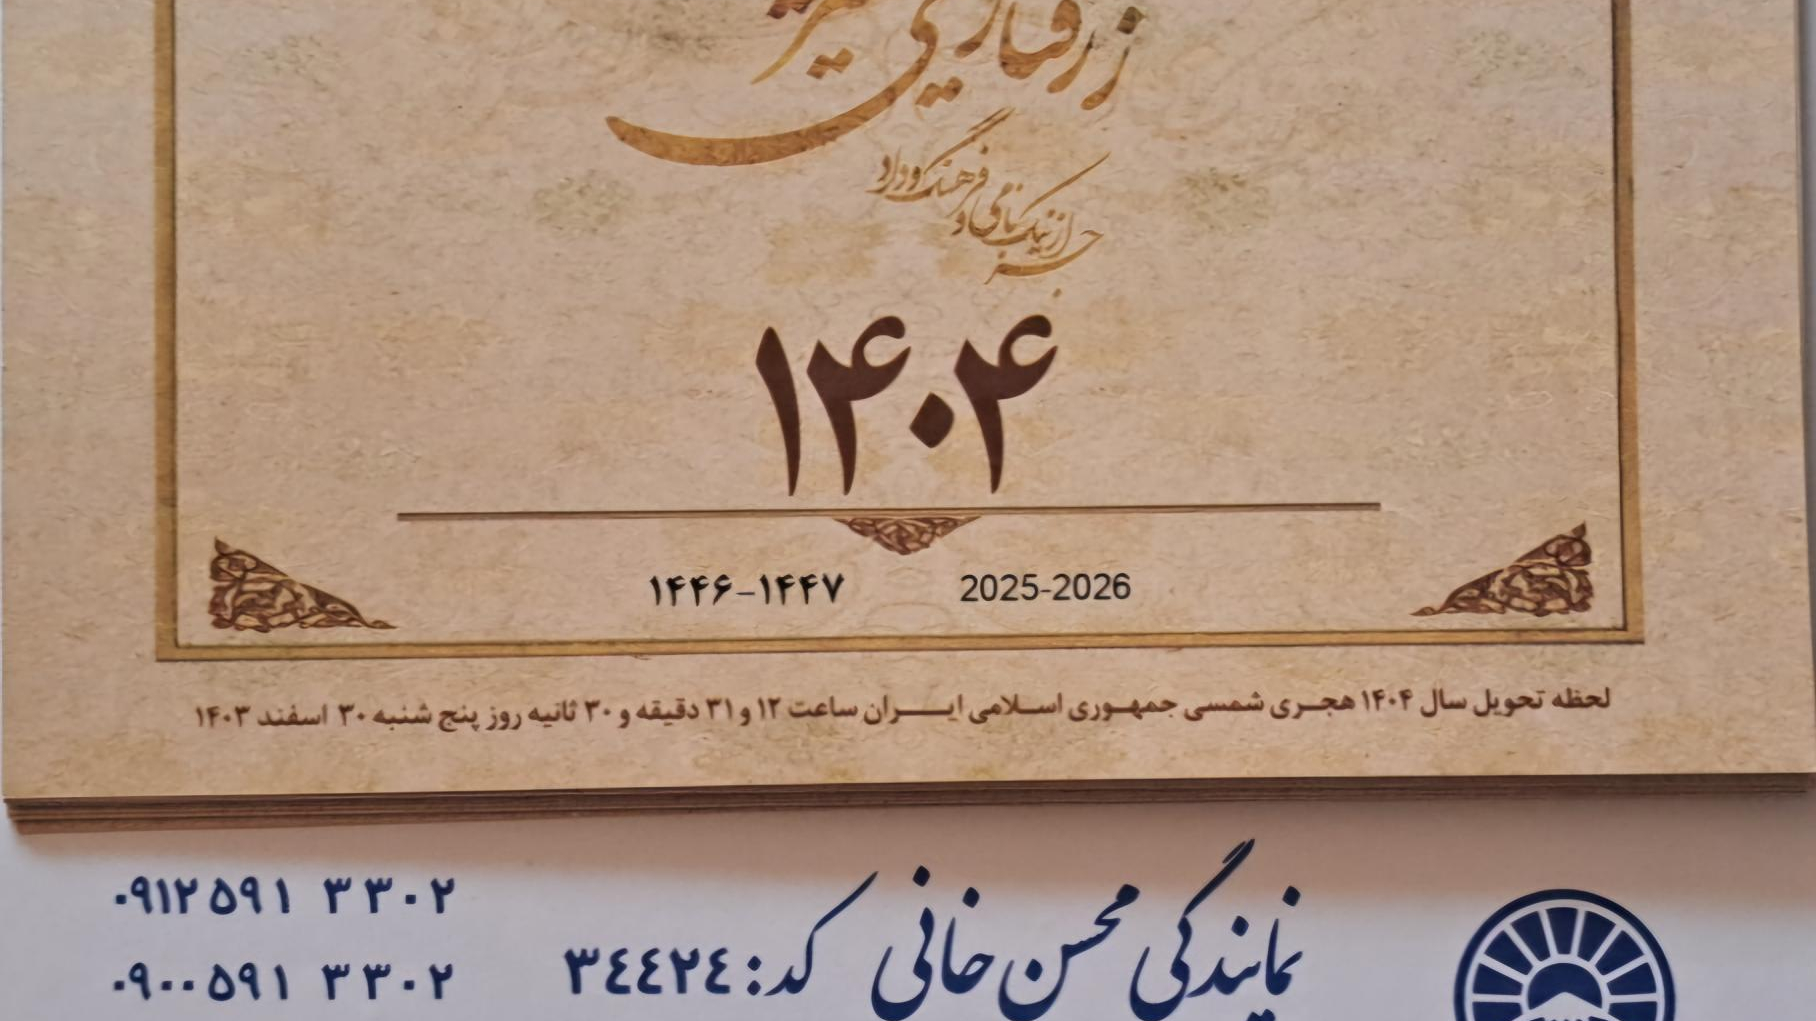 ز رفتار نیز
جز از نیک نامی و فرهنگ و داد
۱۴۰۴
۱۴۴۶-۱۴۴۷ 2025-2026
لحظه تحویل سال ۱۴۰۴ هجری شمسی جمهوری اسلامی ایران ساعت ۱۲ و ۳۱ دقیقه و ۳۰ ثانیه روز پنج شنبه ۳۰ اسفند ۱۴۰۳
نمایندگی محسن خانی کد: ۳۴۴۲۴
۰۹۱۲۵۹۱ ۳۳۰۲
۰۹۰۰۵۹۱ ۳۳۰۲